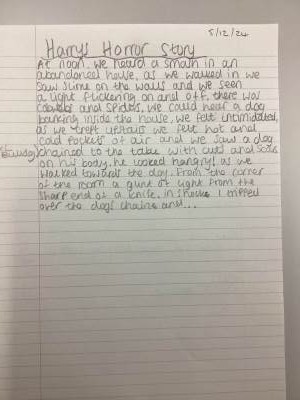 5/12/24
Harrys Horror Story
At noon, we heard a smash in an
abandoned house, as we walked in we
saw slime on the walls and we seen
a light flickering on and off, there was
cobwebs and spiders, we could hear a dog
barking inside the house, we felt intimidated,
as we crept upstairs we felt hot and
cold pockets of air and we saw a dog
chained to the table with cuts and scars
on his body, he looked hangry! as we
walked towards the dog, from the corner
of the room a glint of light from the
sharp end of a knife, in shock I tripped
over the dogs chains and...